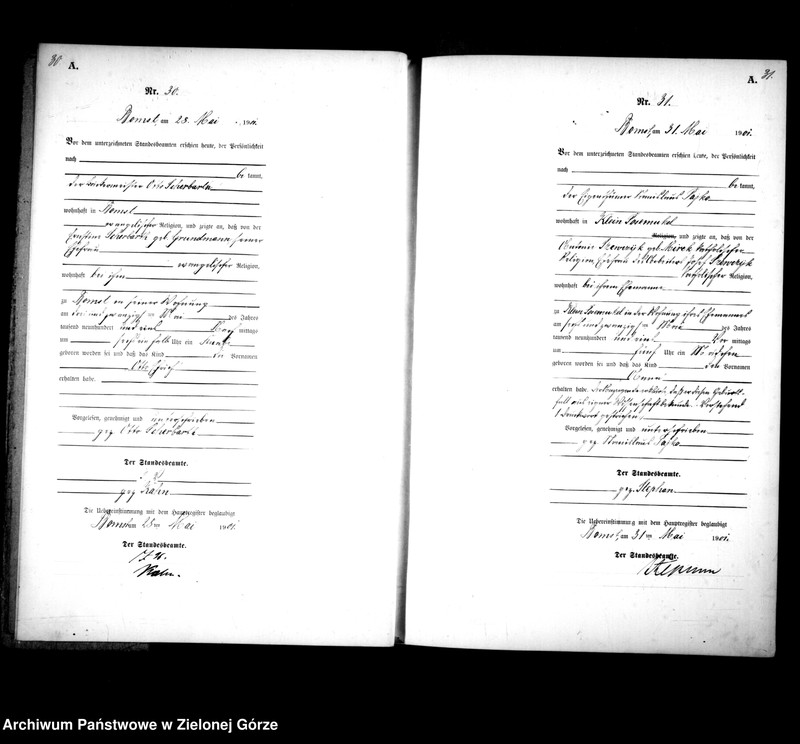 30.
A.
Nr. 30.
Bomst, am 28. Mai 1901.
Vor dem unterzeichneten Standesbeamten erschien heute, der Persönlichkeit
nach
be kannt,
der Otto Scherbarth
wohnhaft in Bomst
evangelischer Religion, und zeigte an, daß von der
Scherbarth geb. Grundmann seiner
Ehefrau
evangelischer Religion,
wohnhaft bei ihm
zu Bomst in seiner Wohnung
am drei und zwanzigsten Mai des Jahres
tausend neunhundert und eins Nach mittags
um sechs ein halb Uhr ein Knabe
geboren worden sei und daß das Kind den Vornamen
Otto
erhalten habe.
Vorgelesen, genehmigt und unterschrieben
gez. Otto Scherbarth
Der Standesbeamte.
gez.
Die Uebereinstimmung mit dem Hauptregister beglaubigt
Bomst, am 28ten Mai 1901.
Der Standesbeamte.
31.
A.
Nr. 31.
Bomst, am 31. Mai 1901.
Vor dem unterzeichneten Standesbeamten erschien heute, der Persönlichkeit
nach
be kannt,
der Eigenthümer
wohnhaft in Klein Posemukel
Religion, und zeigte an, daß von der
geb. katholischer
Religion, Ehefrau des Arbeiters Josef
katholischer Religion,
wohnhaft bei ihrem Ehemanne
zu Klein Posemukel in der Wohnung ihres Ehemannes
am sechs und zwanzigsten Mai des Jahres
tausend neunhundert und eins Vor mittags
um fünf Uhr ein Mädchen
geboren worden sei und daß das Kind den Vornamen
erhalten habe. daß er diesen Geburts-
fall aus eigener Wissenschaft bekunde. Vorstehend
1 Druckwort gestrichen.
Vorgelesen, genehmigt und unterschrieben
gez.
Der Standesbeamte.
gez. Stephan
Die Uebereinstimmung mit dem Hauptregister beglaubigt
Bomst, am 31ten Mai 1901.
Der Standesbeamte.
Stephan
Archiwum Państwowe w Zielonej Górze